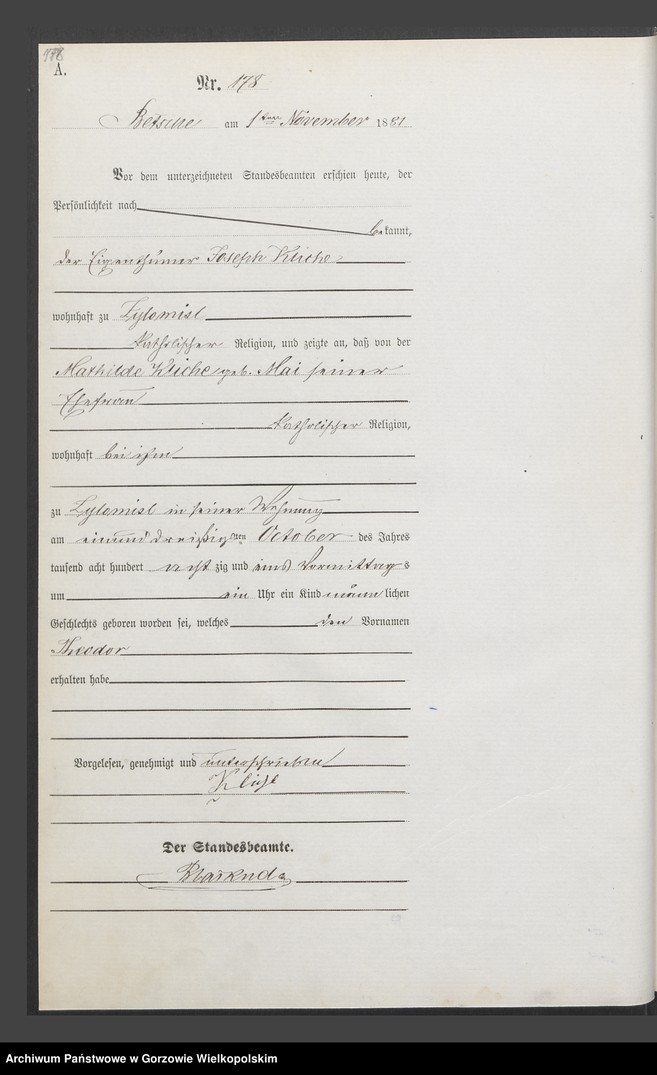 178
A.
Nr. 178
Betsche am 1ten November 1881
Vor dem unterzeichneten Standesbeamten erschien heute, der
Persönlichkeit nach
bekannt,
der Eigenthümer Joseph Kliche
wohnhaft zu Zylomisl
katholischer Religion, und zeigte an, daß von der
Mathilde Kliche geb. Mai seiner
Ehefrau
katholischer Religion,
wohnhaft bei ihm
zu Zylomisl in seiner Wohnung
am einund dreißigsten October des Jahres
tausend acht hundert acht zig und eins Vormittags
um ein Uhr ein Kind männlichen
Geschlechts geboren worden sei, welches den Vornamen
Theodor
erhalten habe
Vorgelesen, genehmigt und unterschrieben
Der Standesbeamte.
Archiwum Państwowe w Gorzowie Wielkopolskim